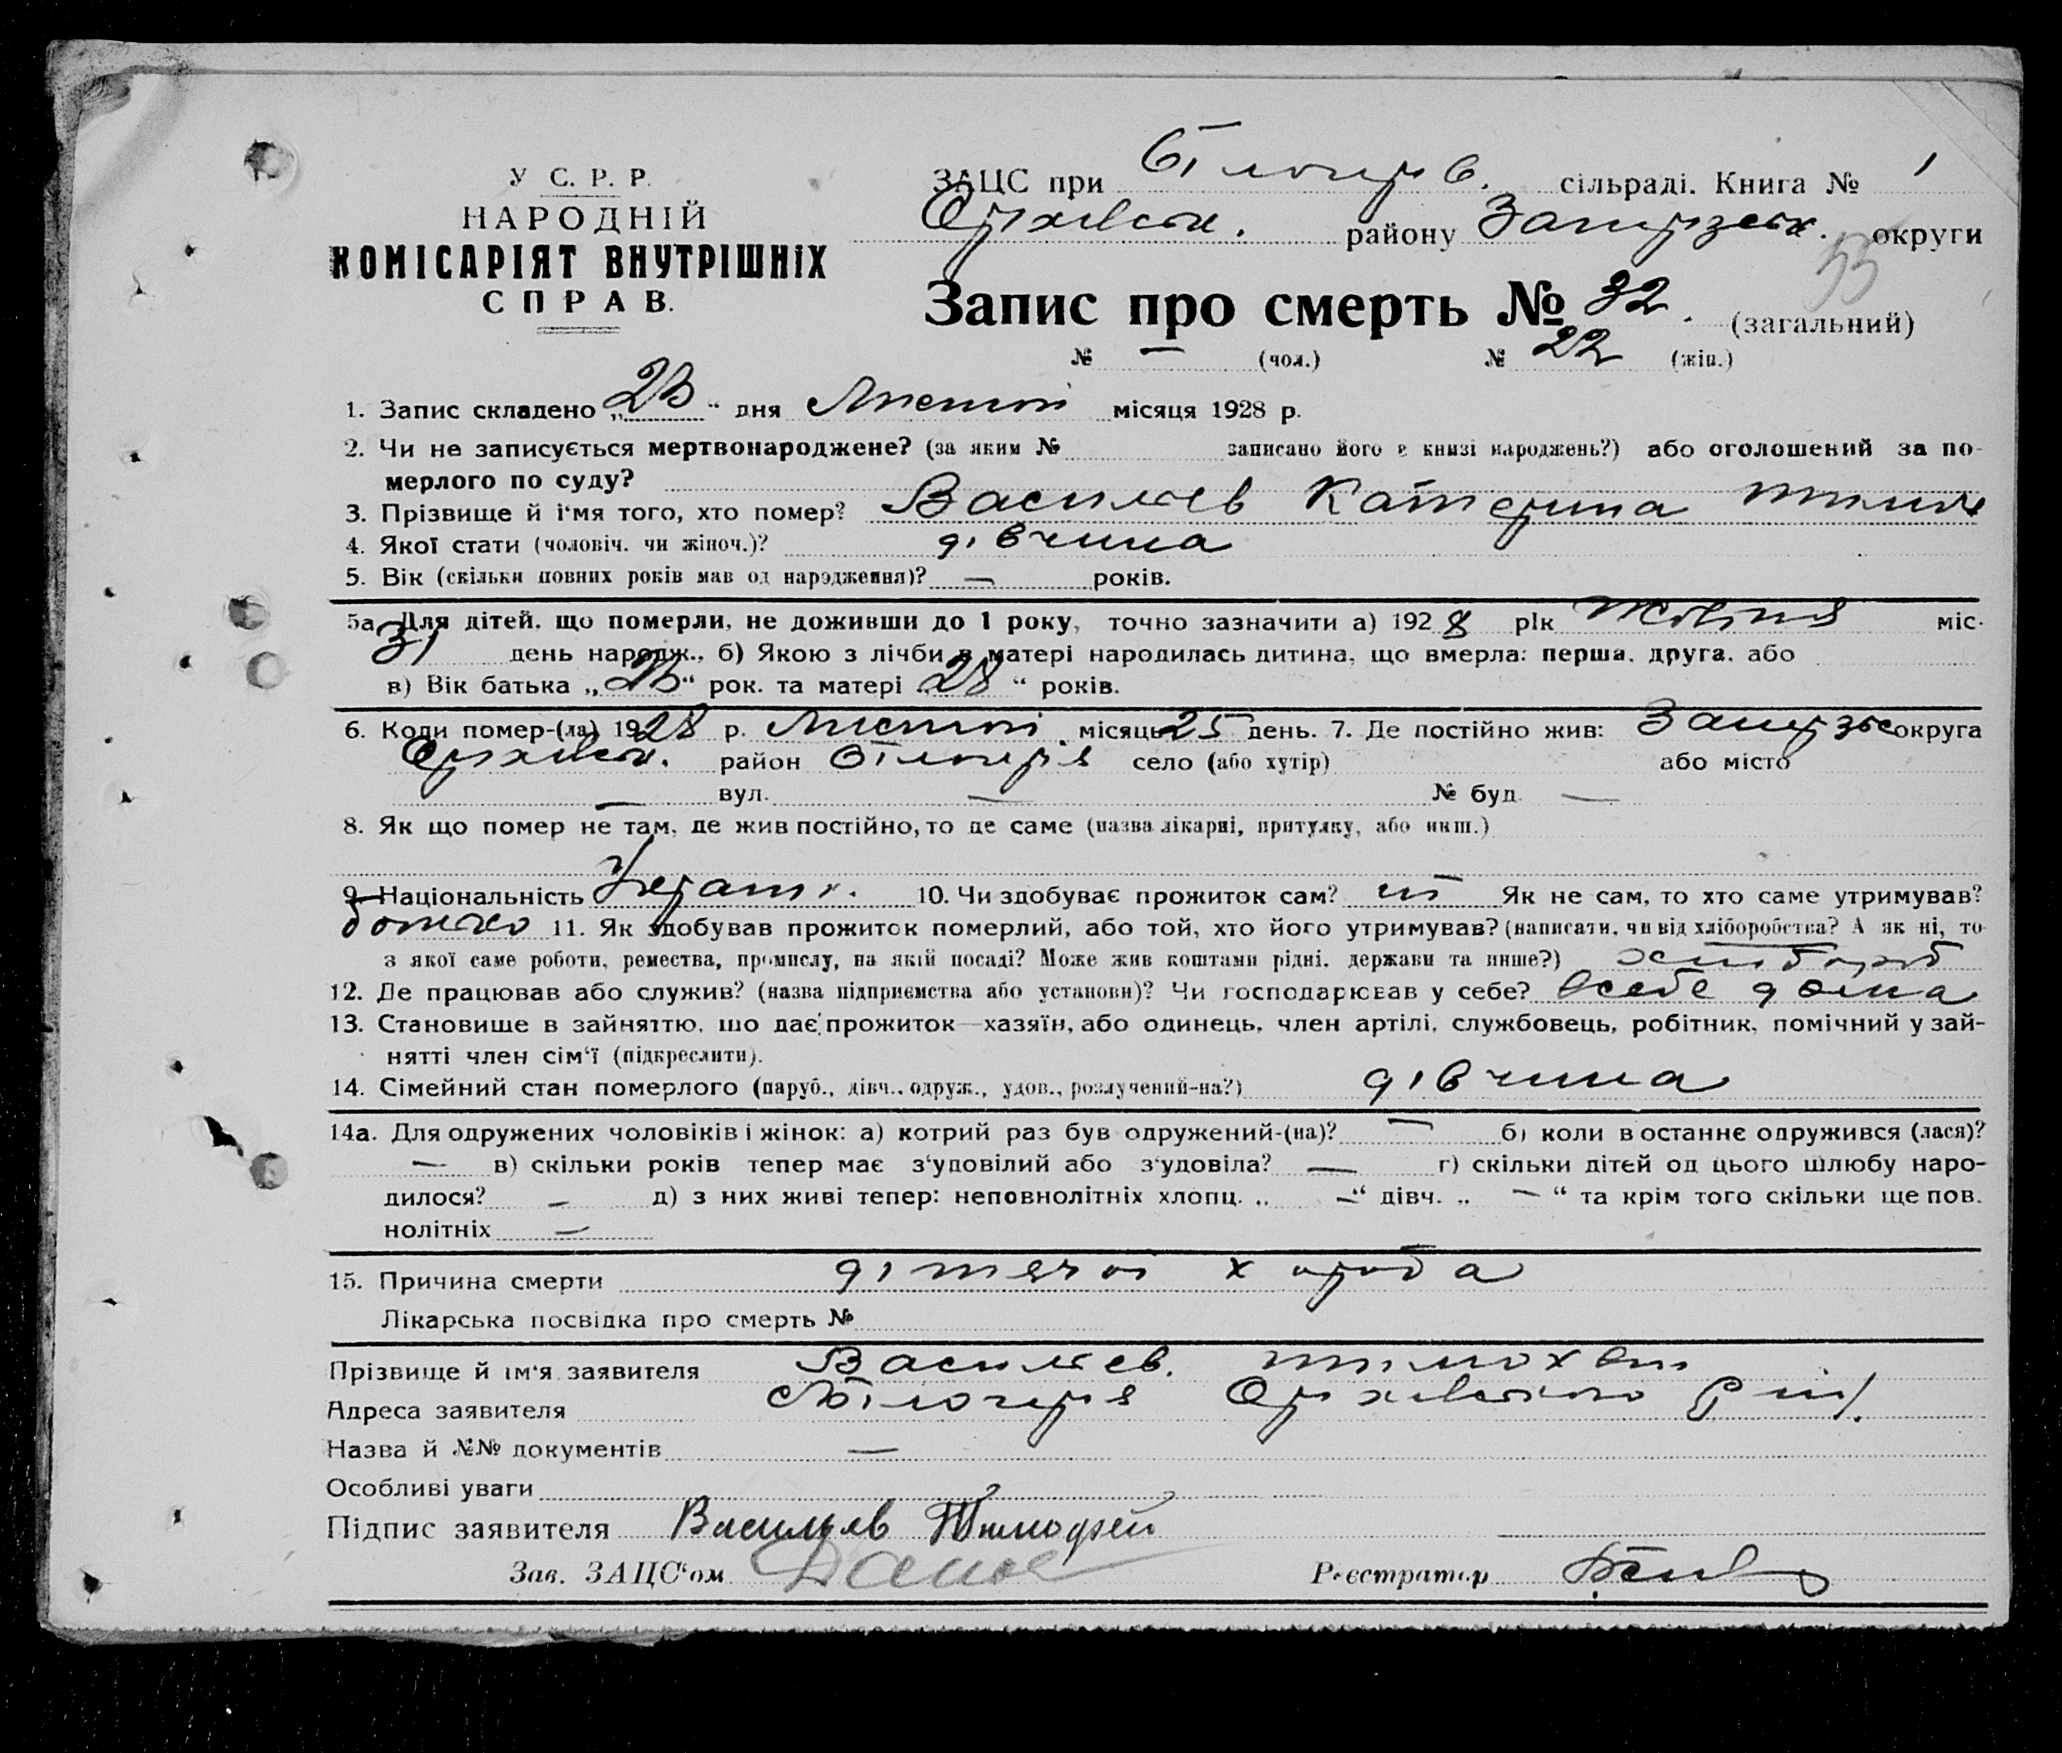 У С. Р. Р.
НАРОДНІЙ
КОМІСАРІЯТ ВНУТРІШНІХ
СПРАВ.
ЗАЦС при сільраді. Книга № 1
Оріхівськ. району Запоріжськ. округи
55
Запис про смерть № 32. (загальний)
№ — (чол.) № 22 (жін.)
1. Запис складено „ “ дня місяця 1928 р.
2. Чи не записується мертвонароджене? (за яким № записано його в книзі народжень?) або оголошений за по-
мерлого по суду?
3. Прізвище й і‘мя того, хто помер? Катерина
4. Якої стати (чоловіч. чи жіноч.)? дівчина
5. Вік (скільки повних років мав од народження)? — років.
5а. Для дітей, що померли, не доживши до 1 року, точно зазначити а) 1928 рік міс.
31 день народж., б) Якою з лічби в матері народилась дитина, що вмерла: перша, друга, або
в) Вік батька „ “ рок. та матері „28“ років.
6. Коли помер-(ла) 1928 р. місяць 25 день. 7. Де постійно жив: округа
Оріхівськ. район село (або хутір) або місто
— вул. — № буд. —
8. Як що помер не там, де жив постійно, то де саме (назва лікарні, притулку, або инш.)
9. Національність 10. Чи здобуває прожиток сам? ні Як не сам, то хто саме утримував?
батько 11. Як здобував прожиток померлий, або той, хто його утримував? (написати, чи від хліборобства? А як ні, то
з якої саме роботи, ремества, промислу, на якій посаді? Може жив коштами рідні, держави та инше?) хлібороб
12. Де працював або служив? (назва підприємства або установи)? Чи господарював у себе? в себе дома
13. Становище в зайняттю, що дає прожиток—хазяїн, або одинець, член артілі, службовець, робітник, помічний у зай-
нятті член сім‘ї (підкреслити).
14. Сімейний стан померлого (паруб., дівч., одруж., удов., розлучений-на?) дівчина
14а. Для одружених чоловіків і жінок: а) котрий раз був одружений-(на)? — б) коли востаннє одружився (лася)?
— в) скільки років тепер має з‘удовілий або з‘удовіла? — г) скільки дітей од цього шлюбу наро-
дилося? — д) з них живі тепер: неповнолітніх хлопц. „ —“ дівч. „ — “ та крім того скільки ще пов.
нолітніх —
15. Причина смерти дітяча хороба
Лікарська посвідка про смерть №
Прізвище й ім‘я заявителя
Адреса заявителя Білогір‘я Оріхівського
Назва й №№ документів —
Особливі уваги
Підпис заявителя Васильєв Тимофей
Зав. ЗАЦС‘ом
Реєстратор